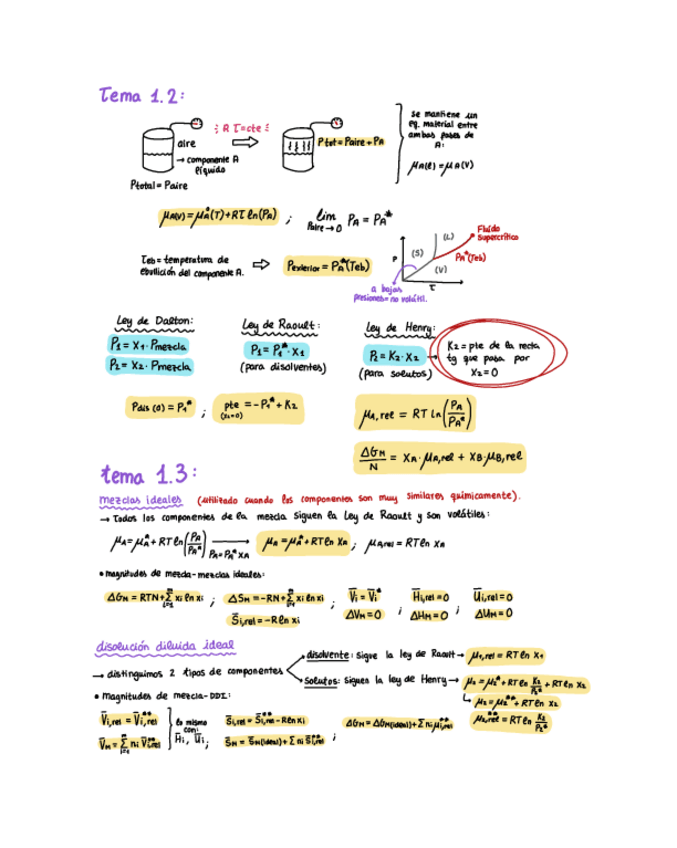 Tema 1.2:
¡ A T=cte !
aire
→ componente A
líquido
Ptotal = Paire
Ptot = Paire + PA
se mantiene un
eq. material entre
ambas fases de
A:
μA(l) = μA(v)
μA(v) = μA°(T) + RT ln(PA) ; lim Paire→0 PA = PA*
Teb = temperatura de
ebullición del componente A.
⇒ Pexterior = PA*(Teb)
P
(S)
(L)
(V)
T
Fluido
supercrítico
PA*(Teb)
a bajas
presiones = no volátil.
Ley de Dalton:
P1 = X1 · Pmezcla
P2 = X2 · Pmezcla
Ley de Raoult:
P1 = P1* · X1
(para disolventes)
Ley de Henry:
P2 = K2 · X2
(para solutos)
K2 = pte de la recta
tg que pasa por
X2 = 0
Pdis (0) = P1* ; pte (x2=0) = -P1* + K2
μA,rel = RT ln(PA/PA*)
ΔGM/N = XA · μA,rel + XB · μB,rel
tema 1.3:
mezclas ideales (utilizado cuando los componentes son muy similares químicamente).
→ Todos los componentes de la mezcla siguen la Ley de Raoult y son volátiles:
μA = μA* + RT ln(PA/PA*) → PA = PA* XA μA = μA* + RT ln XA ; μA,rel = RT ln XA
• magnitudes de mezcla - mezclas ideales:
ΔGM = RTN + Σ i=1 xi ln xi ; ΔSM = -RN + Σ i=1 xi ln xi ; V̄i = V̄i* ; H̄i,rel = 0 ; Ūi,rel = 0
S̄i,rel = -R ln xi ΔVM = 0 ΔHM = 0 ΔUM = 0
disolución diluida ideal
→ distinguimos 2 tipos de componentes
disolvente: sigue la ley de Raoult → μ1,rel = RT ln X1
solutos: siguen la ley de Henry → μ2 = μ2* + RT ln K2/P2* + RT ln X2
μ2 = μ2** + RT ln X2
μ2,rel** = RT ln K2/P2*
• Magnitudes de mezcla - DDI:
V̄i,rel = V̄i,rel**
V̄M = Σ i=1 ni V̄i,rel**
lo mismo
con:
H̄i, Ūi ;
S̄i,rel = S̄i,rel** - R ln xi
S̄M = S̄M(ideal) + Σ ni S̄i,rel** ;
ΔGM = ΔGM(ideal) + Σ ni μi,rel**